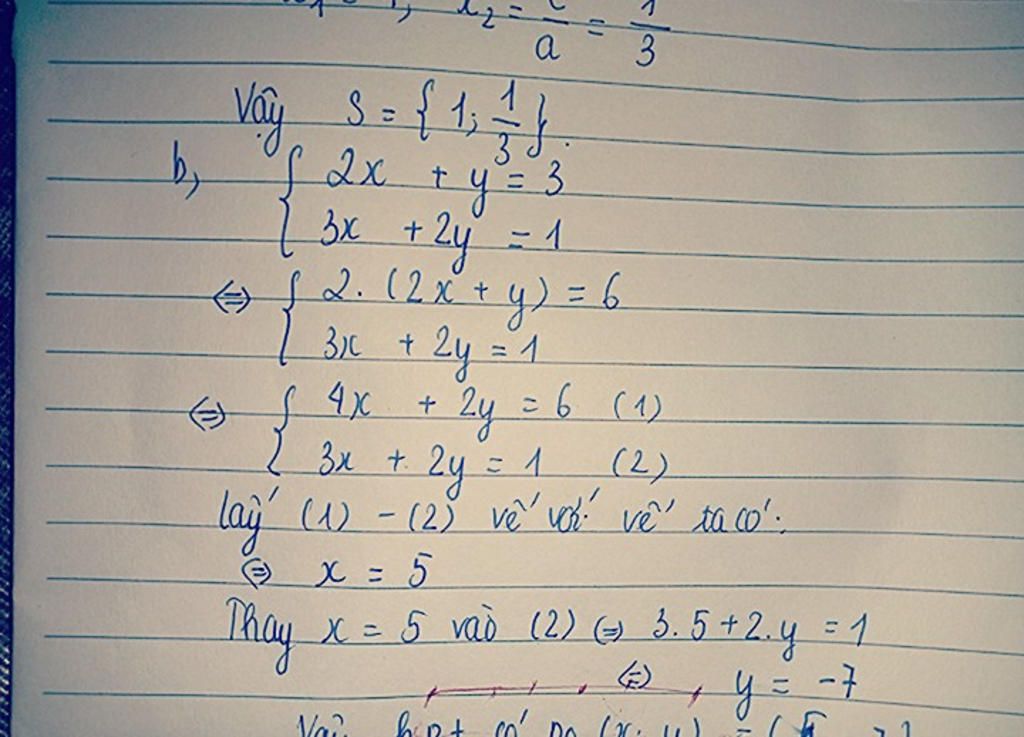 x₂ = c/a = 1/3
Vậy S = { 1; 1/3 }.
b, { 2x + y = 3
3x + 2y = 1
⇔ { 2. (2x + y) = 6
3x + 2y = 1
⇔ { 4x + 2y = 6 (1)
3x + 2y = 1 (2)
lấy (1) - (2) vế với vế ta có:
⇔ x = 5
Thay x = 5 vào (2) ⇔ 3.5 + 2.y = 1
⇔ y = -7
Vậy hpt có no (x; y) =